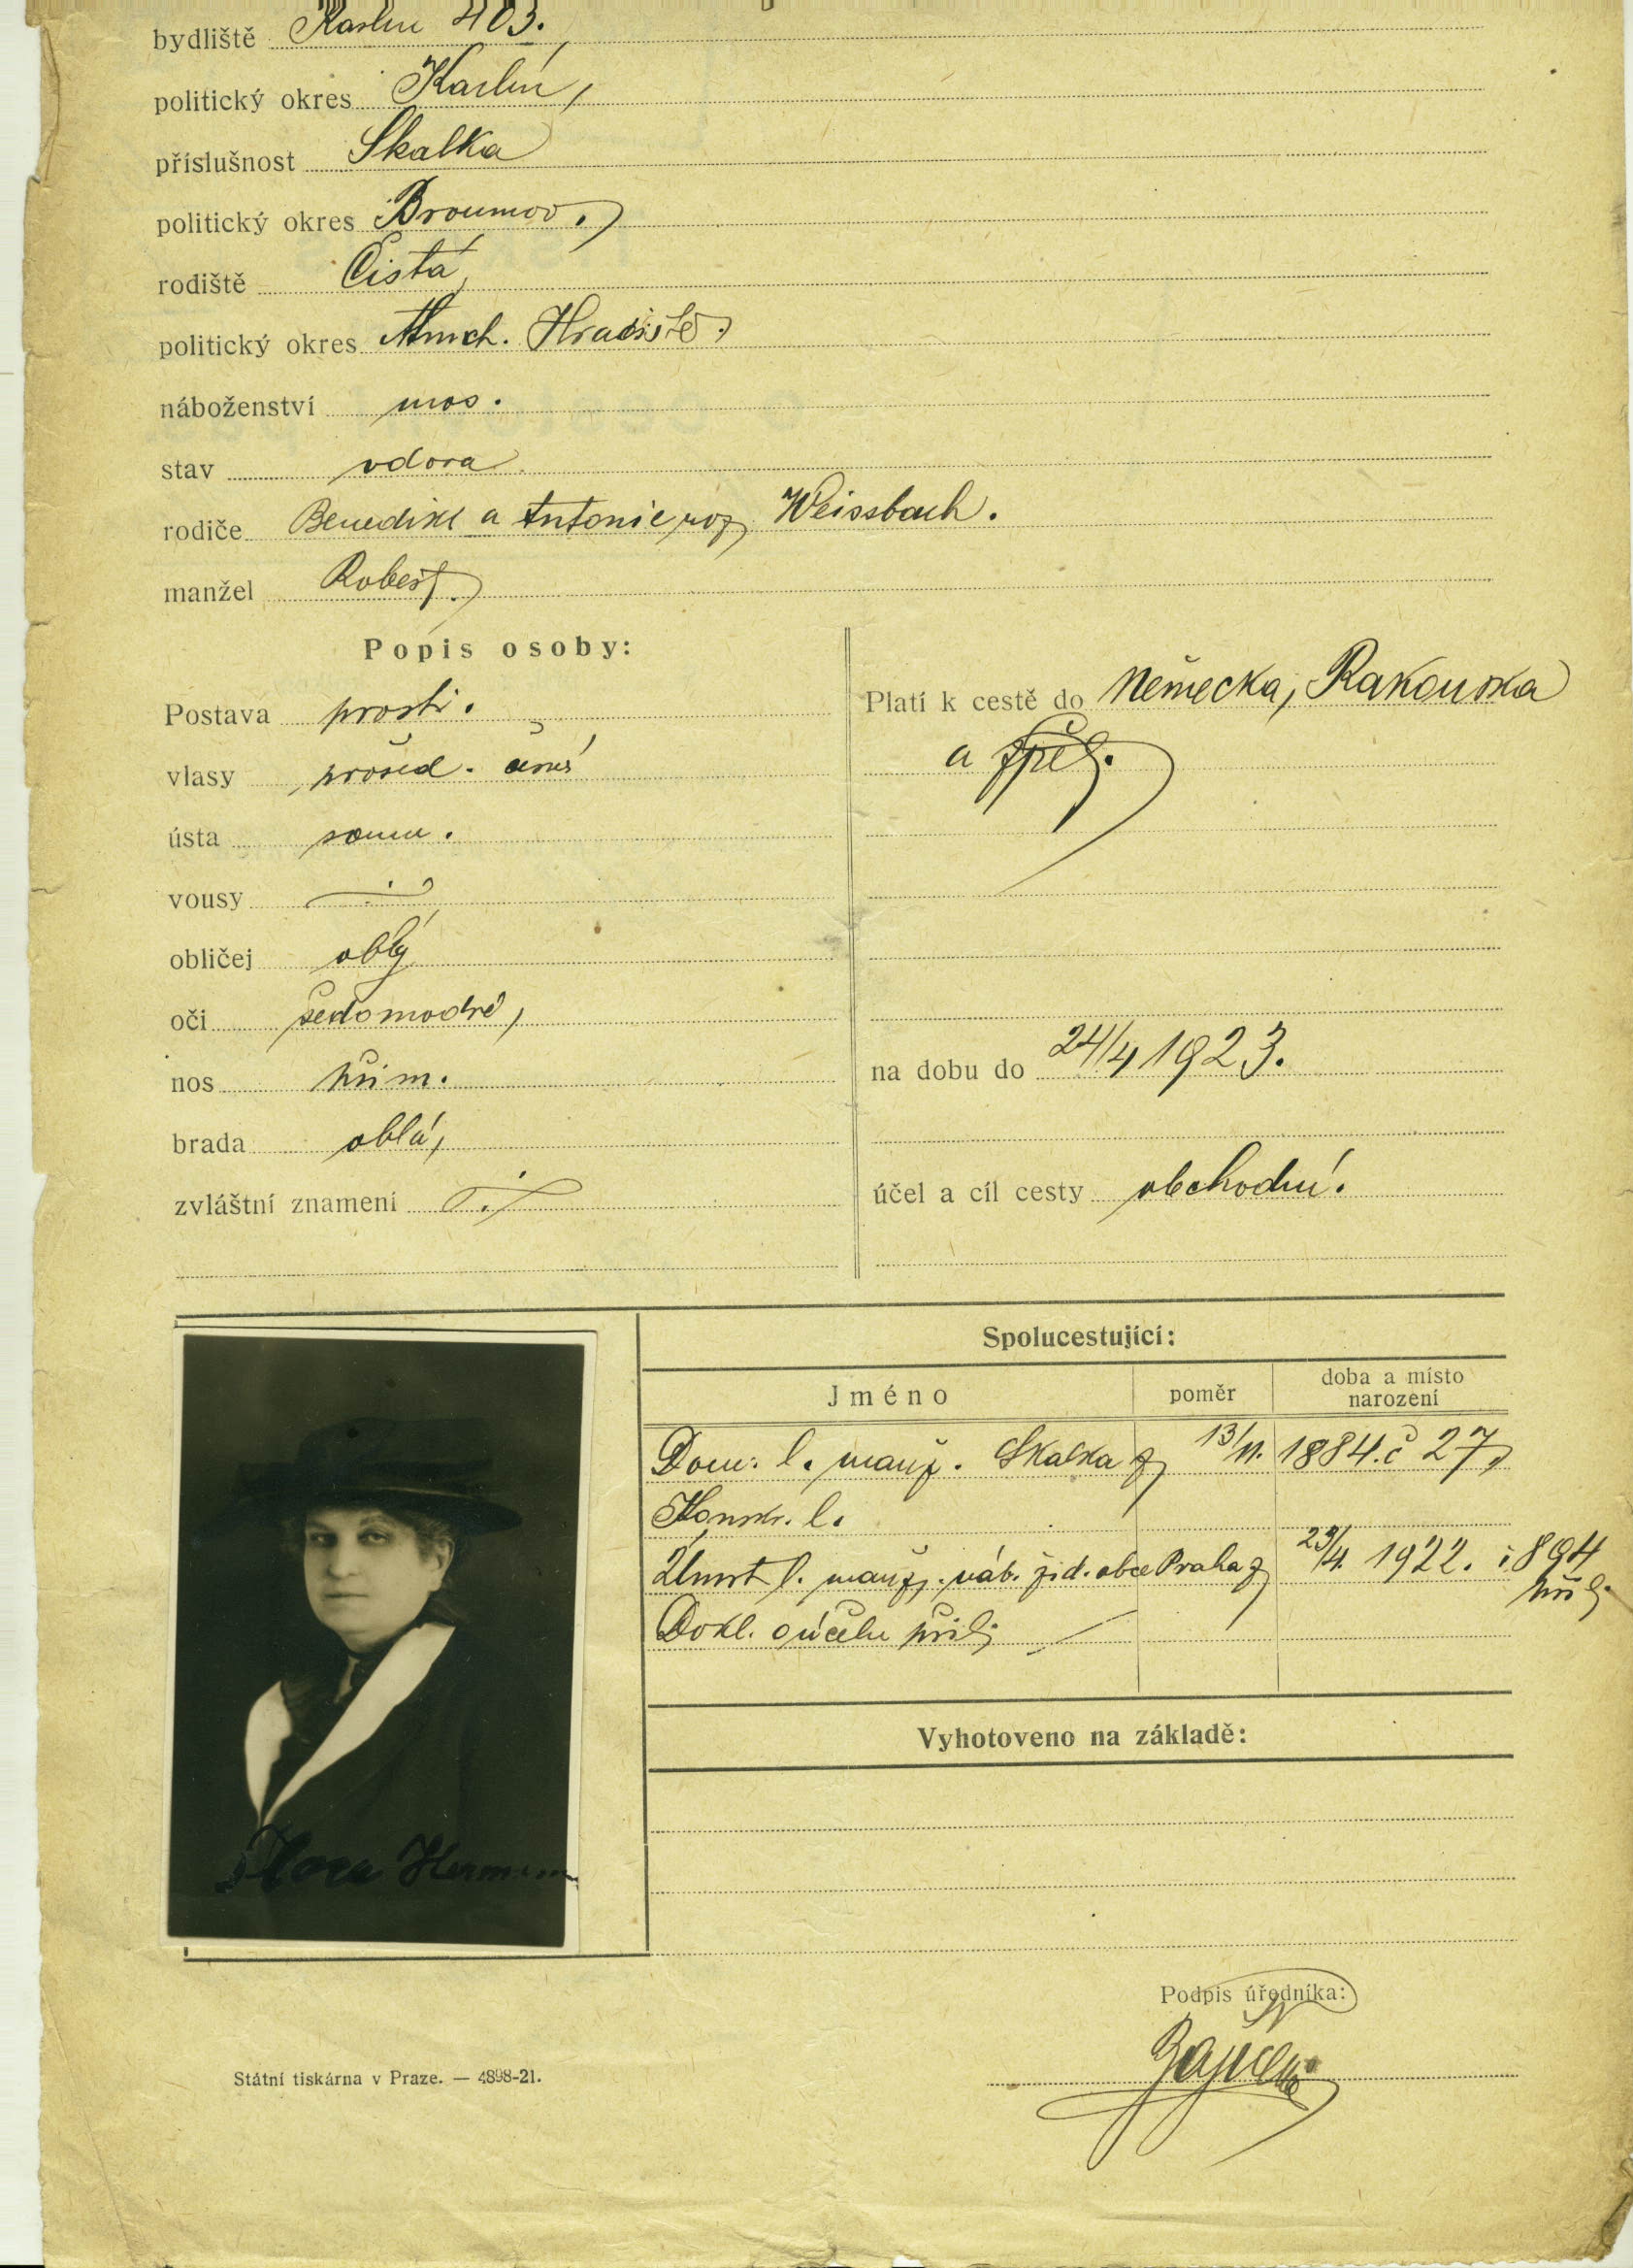 bydliště Karlín 403.
politický okres Karlín,
příslušnost Skalka
politický okres Broumov.
rodiště Čistá,
politický okres Mnich. Hradiště.
náboženství mos.
stav vdova
rodiče Benedikt a Antonie roz. Weissbach.
manžel Robert.
Popis osoby:
Postava prostř.
vlasy prošed. černé
ústa soum.
vousy
obličej oblý
oči šedomodré,
nos přim.
brada oblá,
zvláštní znamení
Platí k cestě do Německa, Rakouska
a zpět.
na dobu do 24/4 1923.
účel a cíl cesty obchodní.
Spolucestující:
Jméno poměr doba a místo narození
Dom. l. manž. Skalka z 13/11. 1884. č 27,
Konskr. l.
Úmrt l. manž. náb. žid. obce Praha z 23/4 1922. 894
příl.
Dokl. o účelu příl.
Vyhotoveno na základě:
Flora Hermann
Podpis úředníka:
Státní tiskárna v Praze. — 4898-21.